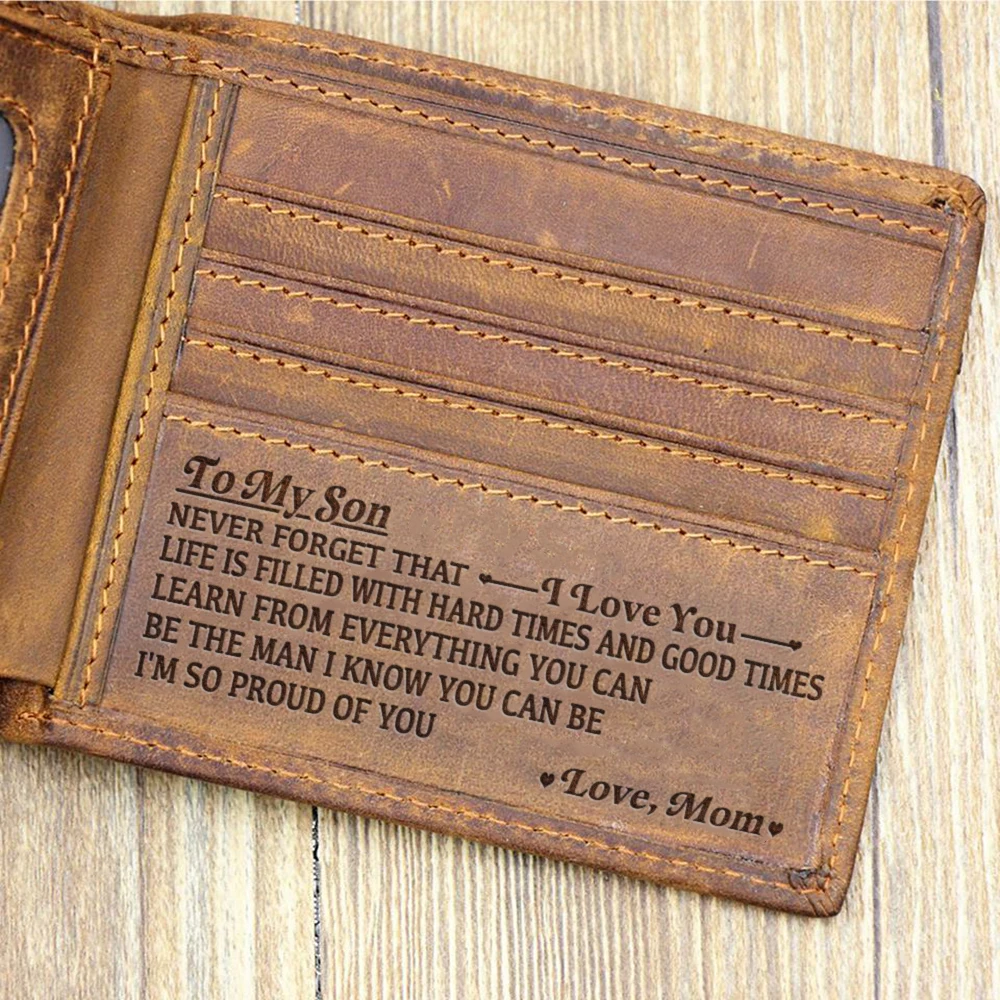 To My Son
NEVER FORGET THAT I Love You
LIFE IS FILLED WITH HARD TIMES AND GOOD TIMES
LEARN FROM EVERYTHING YOU CAN
BE THE MAN I KNOW YOU CAN BE
I'M SO PROUD OF YOU
Love, Mom